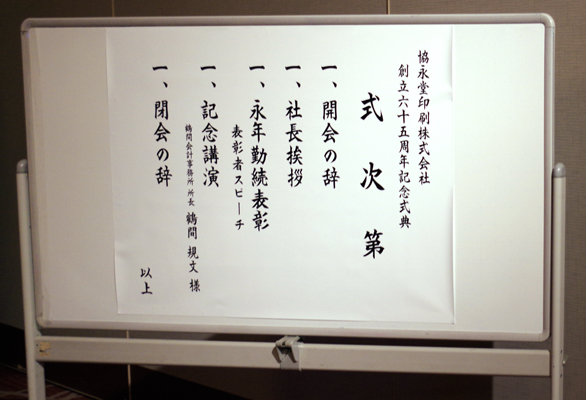 協永堂印刷株式会社
創立六十五周年記念式典
式次第
一、開会の辞
一、社長挨拶
一、永年勤続表彰
表彰者スピーチ
一、記念講演
鶴間会計事務所 所長 鶴間 規文 様
一、閉会の辞
以上